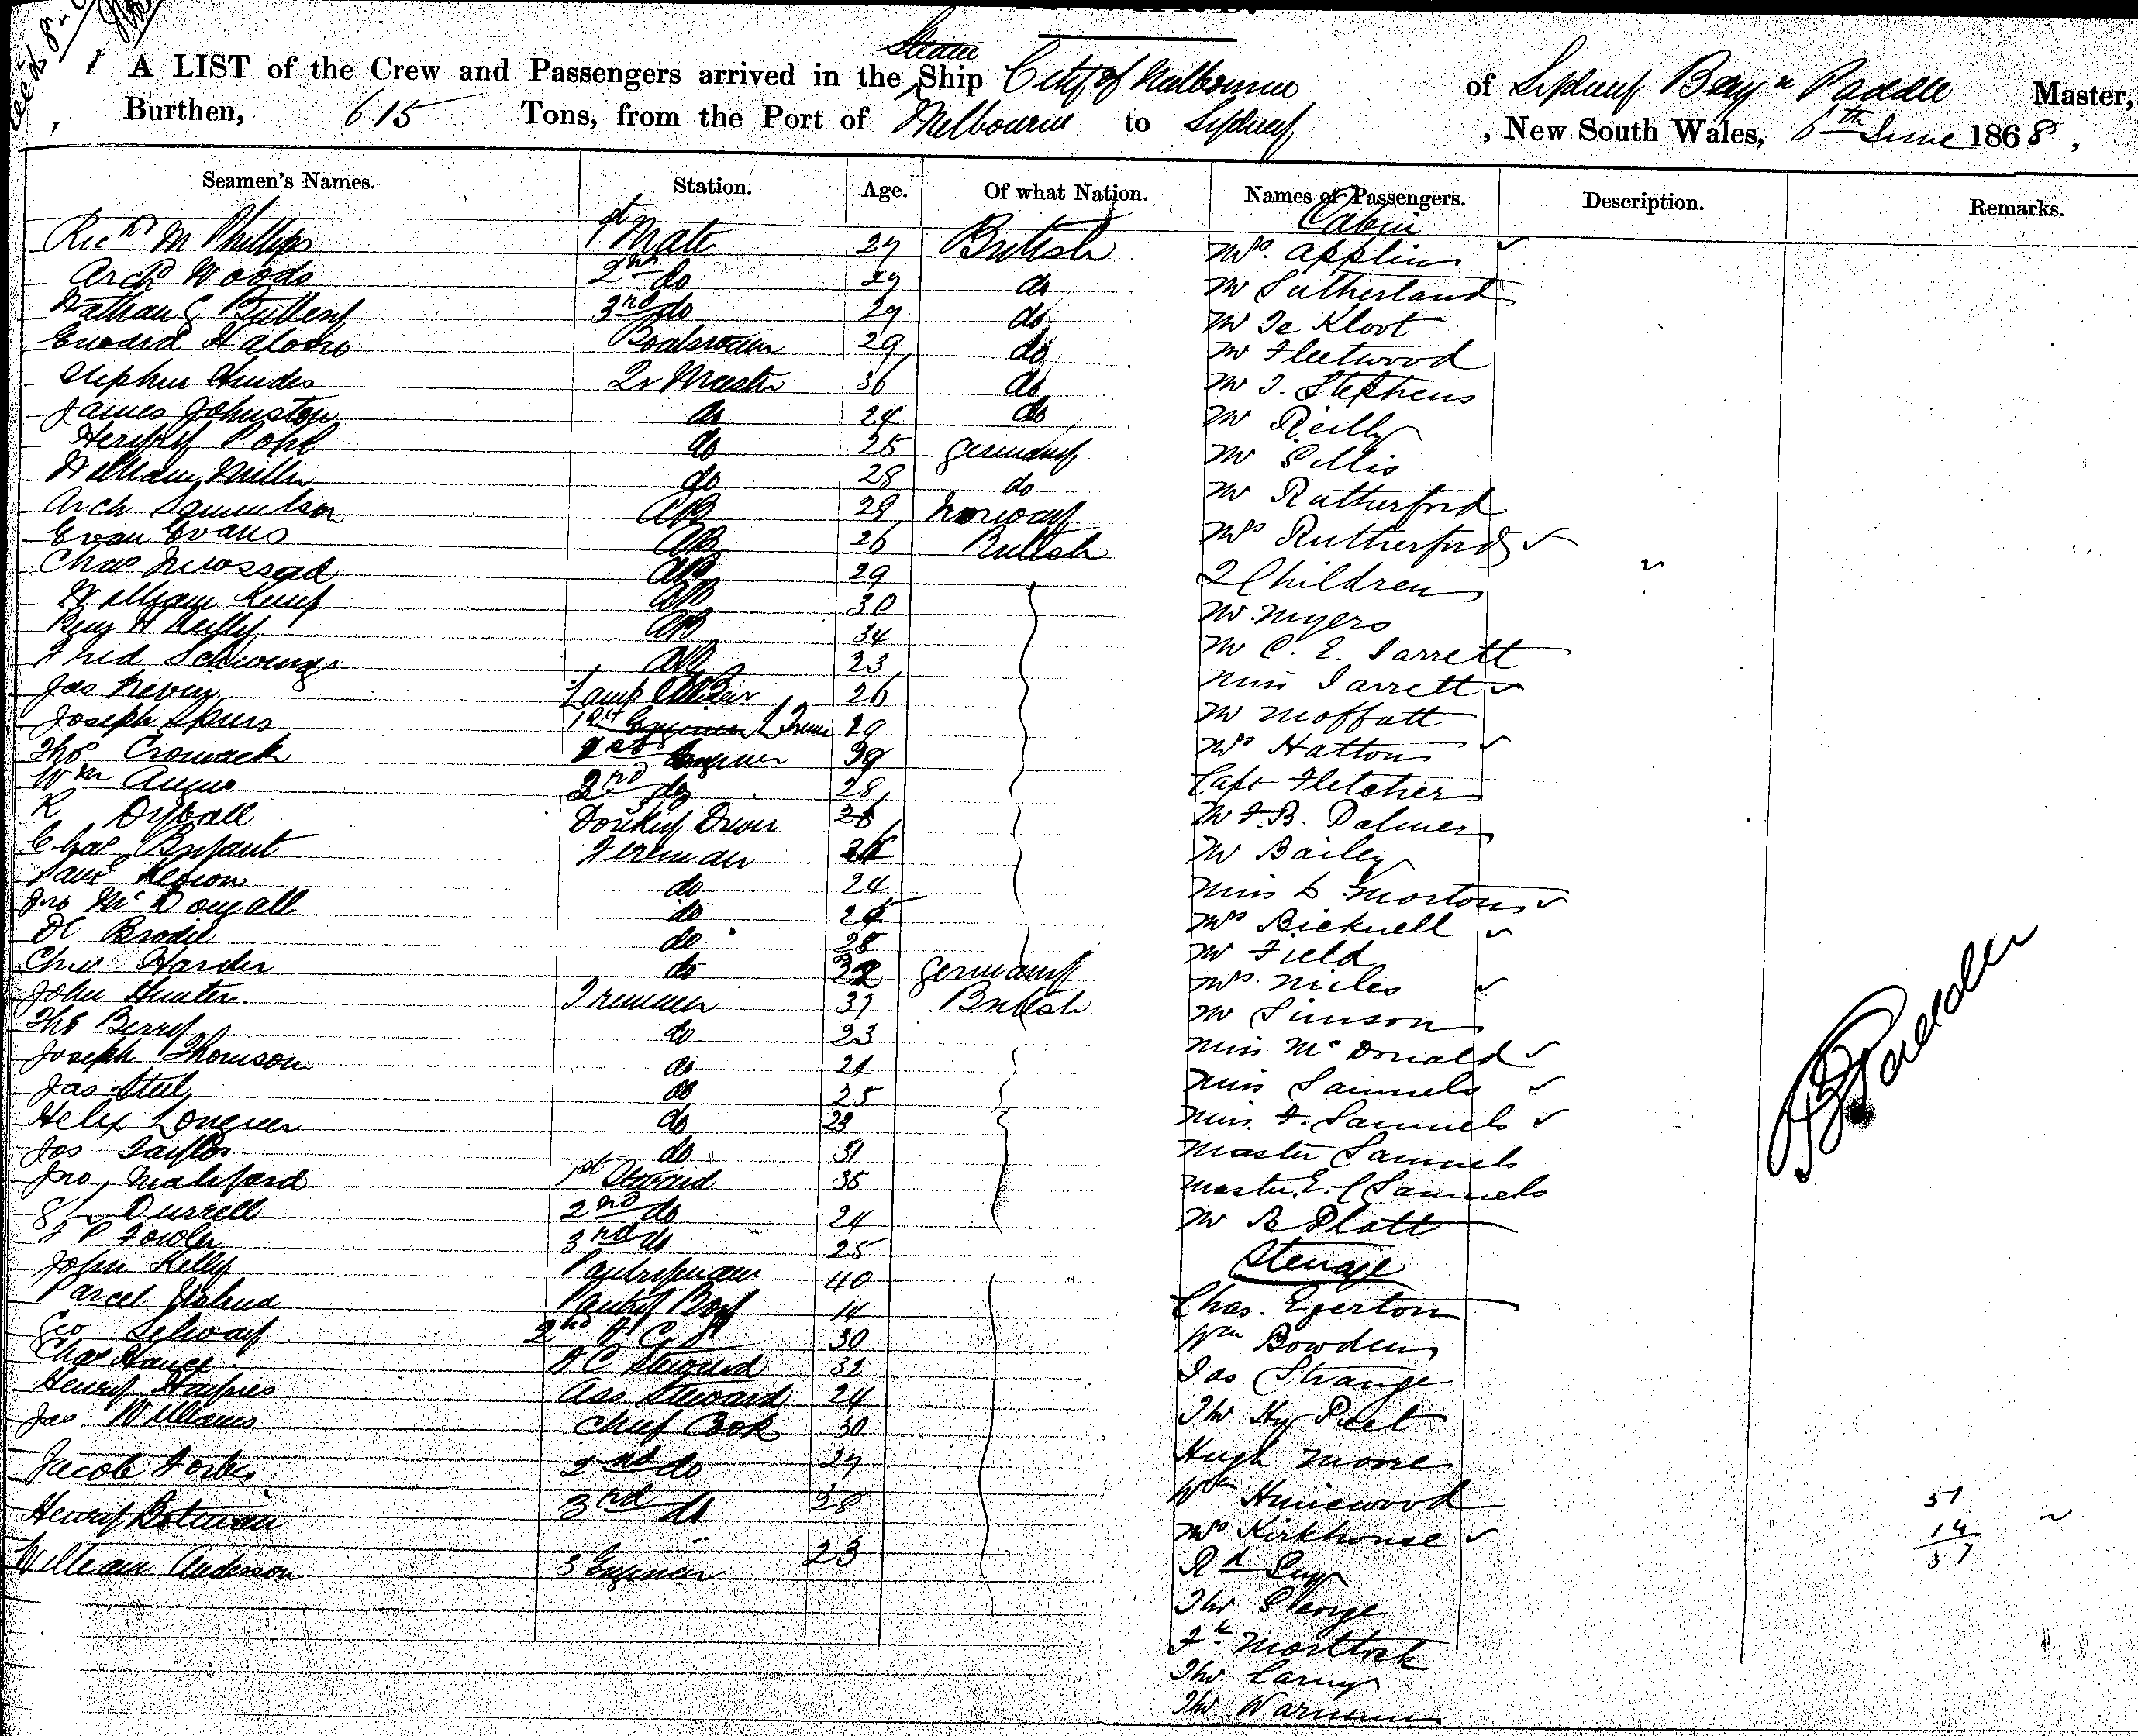 Steam
A LIST of the Crew and Passengers arrived in the Ship City of Melbourne of Sydney Benjn Paddle Master,
Burthen, 615 Tons, from the Port of Melbourne to Sydney, New South Wales, 6th June 1868,
Seamen's Names. Station. Age. Of what Nation. Names of Passengers. Description. Remarks.
Cabin
Richd M Phillips 1st Mate 27 British Mrs. Applin
Archd Woods 2nd do 29 do Mr Sutherland
Nathan G Bulleny 3rd do 29 do Mr Te Kloot
Edward Boatswain 29 do Mr Fleetwood
Stephen Hindes Qr Master 36 do Mr J. Stephens
James Johnston do 24 do Mr Reilly
Henry Pohl do 25 Germany Mr Gillis
William Miller do 28 do Mr Rutherford
Arch Samuelson AB 29 Norway Mrs Rutherford
Evan Evans AB 26 British 2 Children
Chas AB 29 Mr. Myers
William Kemp AB 30 Mr C. E. Jarrett
Benj H Reilly AB 34 Miss Jarrett
Fred AB 23 Mr Moffatt
Jas Lamp Trimmer 26 Mrs Hatton
Joseph Spurs 29 Capt Fletcher
Thos Cromack 1st Engineer 39 Mr F. B. Palmer
Wm Angus 2nd do 28 Mr Bailey
R Dyball Donkey Driver Miss L Morton
Chas Bryant Fireman Mrs Bicknell
do 24 Mr Field
Jno McDougall do Mrs. Miles
D Brodie do 28 Mr Simson
Chr Harder do 32 Germany Miss McDonald
John Hunter Trimmer 37 British Miss Samuels
Thos Berry do 23 Miss F. Samuels
Joseph Thomson do 21 Master Samuels
Jas Steel do 25 Master E. Samuels
Longuer do 23 Mr R Platt
Jos Taylor do 31 Steerage
Jno 1st Steward 35 Chas. Egerton
Durrell 2nd do 24 Wm Bowden
F P Fowler 3rd do 25 Jas Strange
John Kelly Pantryman 40 Thos Hy Peet
Pantry Boy 14 Hugh Moore
Geo Selway 2nd F C 30 Wm
Chas Hance F C Steward 32 Mrs Kirkhouse
Henry Haynes Ass Steward 24 Rd
Jas Williams Chief Cook 30 Thos George
Jacob Forbes 2nd do 27 Fk Mortlock
Henry Botman 3rd do 28 Thos Carny
William Anderson 3 Engineer 23 Thos
51
14
37